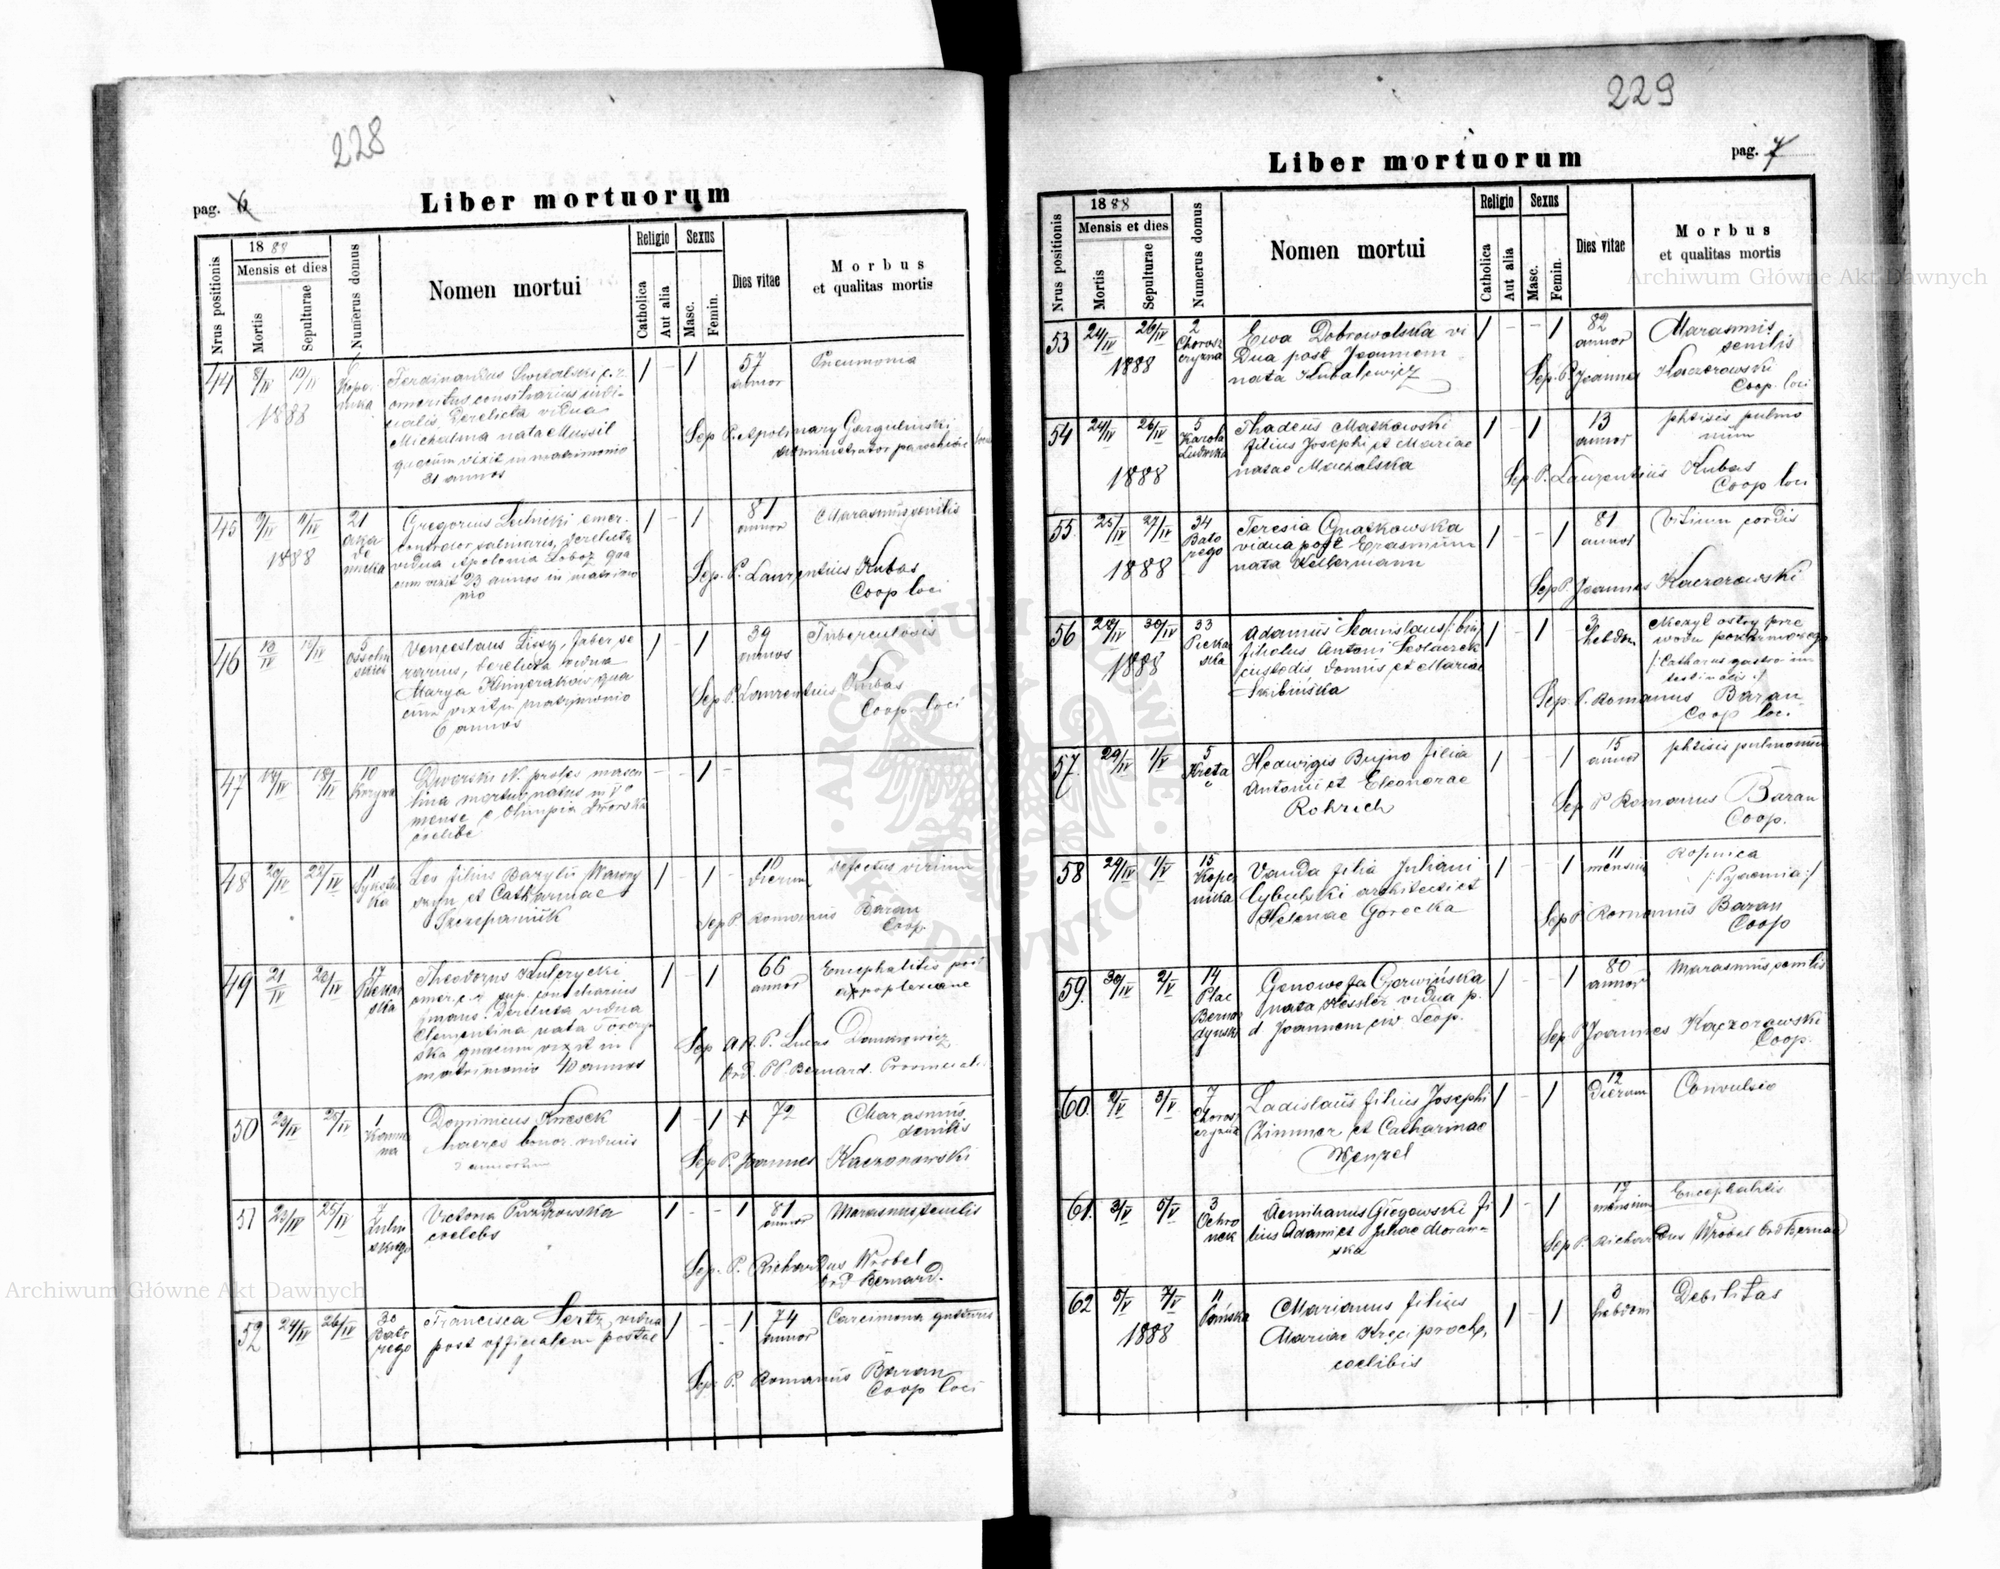 228
pag. 6
Liber mortuorum
Nrus positionis
1888
Mensis et dies
Mortis
Sepulturae
Numerus domus
Nomen mortui
Religio
Catholica
Aut alia
Sexus
Masc.
Femin.
Dies vitae
Morbus
et qualitas mortis
44 8/IV 10/IV 1888
Koper
nika
Ferdinandus
emeritus consiliarius iudi-
cialis, derelicta vidua
Michalina nata Mussil
quacum vixit in matrimonio
31 annos
1 - 1
57
annor
Pneumonia
Sep P. Apolinary Gargulinski
administrator parochiae loci
45 9/IV 11/IV 1888
21
aka
de
micka
Gregorius Letnicki emer.
controlor salinaris, derelicta
vidua Apolonia Łoboz qua
cum vixit 23 annos in matrimo
nio
1 - 1
81
annor
Marasmus senilis
Sep. P. Laurentius Kubas
Coop loci
46 10/IV 12/IV
5
Ossoliń
skich
Venceslaus Lissy, faber se
rarius, derelicta vidua
Marya qua
cum vixit in matrimonio
6 annos
1 - 1
39
annos
Tuberculosis
Sep P. Laurentius Kubas
Coop loci
47 17/IV 18/IV
10
Dworski N. proles mascu
lina mortuo natus in
mense e Olimpia Dworska
coelibe
- - 1 -
48 20/IV 22/IV
11
Syxstu
ska
Leo filius Basylii Wawry
et Catharinae
Szczepaniuk
1 - 1 -
dierum
defectus virium
Sep P. Romanus Baran
Coop
49 21/IV 23/IV
17
Piekar
ska
Theodorus Kulczycki
emer. c. r. sup. consiliarius
derelicta vidua
Clementina nata
ska quacum vixit in
matrimonio 40 annos
1 - 1
66
annor
Encephalitis post
appoplexiane
Sep A. R. P. Lucas Dankiewicz
Ord. PP. Bernard. Provincial.
50 23/IV 25/IV
1
Dominicus Knesek
1 - 1 +
72
Marasmus
senilis
Sep P. Joannes Kaczorowski
51 23/IV 25/IV
7
Zulin
skiego
Victoria Puzdrowska
coelebs
1 - - 1
81
annor
Marasmus senilis
Sep. P. Richardus Wrobel
Ord Bernard.
52 24/IV 26/IV
30
Bato
rego
Francisca Sertz, vidua
post officialem postae
1 - - 1
74
annor
Carcinoma gutturis
Sep. P. Romanus Baran
Coop loci
229
Liber mortuorum
pag. 7
Nrus positionis
1888
Mensis et dies
Mortis
Sepulturae
Numerus domus
Nomen mortui
Religio
Catholica
Aut alia
Sexus
Masc.
Femin.
Dies vitae
Morbus
et qualitas mortis
53 24/IV 26/IV 1888
2
Chorosz
czyzna
Ewa Dobrowolska vi
dua post Joannem
nata Kubalewicz
1 - - 1
82
annor
Marasmus
senilis
Sep. P. Joannes Kaczorowski
Coop. loci
54 24/IV 26/IV 1888
5
Karola
Ludwika
Thadeus Matkowski
filius Josephi et Mariae
natae Machalska
1 - 1
13
annor
phtisis pulmo
num
Sep P. Laurentius Kubas
Coop loci
55 25/IV 27/IV 1888
34
Bato
rego
Teresia Gnatkowska
vidua post Erasmum
nata Kellermann
1 - - 1
81
annor
Vitium cordis
Sep P. Joannes Kaczorowski
56 28/IV 30/IV 1888
33
Piekar
ska
Adamus Stanislaus /: bin/
filiolus Antoni Sedlaczek
custodis domus et Mariae
Skibińska
1 - 1 -
3
hebdom
Niezyt ostry prze
wodu pokarmowego
/: Catharus gastro in
testinalis :/
Sep. P. Romanus Baran
Coop loci.
57. 29/IV 1/V
5
Kręta
Hedwigis Bujno filia
Antoni et Eleonorae
Rohrich
1 - 1
15
annor
phtisis pulmonum
Sep P Romanus Baran
Coop.
58 29/IV 1/V
15
Koper
nika
Vanda filia Juliani
Cybulski architecti et
Helenae Górecka
1 - 1
11
mensium
Ropnica
/: Pyaemia :/
Sep P. Romanus Baran
Coop
59. 30/IV 2/V
14
Plac
Bernar
dynski
Genowefa Gorwińska
nata Kessler vidua p.
d Joannem civ Leop.
1 - 1
80
annor
Marasmus senilis
Sep P Joannes Kaczorowski
Coop.
60. 2/V 3/V
7
Chorosz
czyzna
Ladislaus filius Josephi
Zimmer et Catharinae
Wenzel
1 - 1
12
dierum
Convulsio
61. 3/V 5/V
3
Ochro
nek
Aemilianus Głogowski fi
lius Adami et Juliae Moraw-
ska
1 - 1
17
mensium
Encephalitis
Sep P. Richardus Wrobel Ord Bernar
62 5/V 7/V 1888
11
Pańska
Marianus filius
Mariae Kręciproch,
coelibis
1 - 1
3
hebdom
Debilitas
Archiwum Główne Akt Dawnych
Archiwum Główne Akt Dawnych
ARCHIWUM GŁÓWNE AKT DAWNYCH